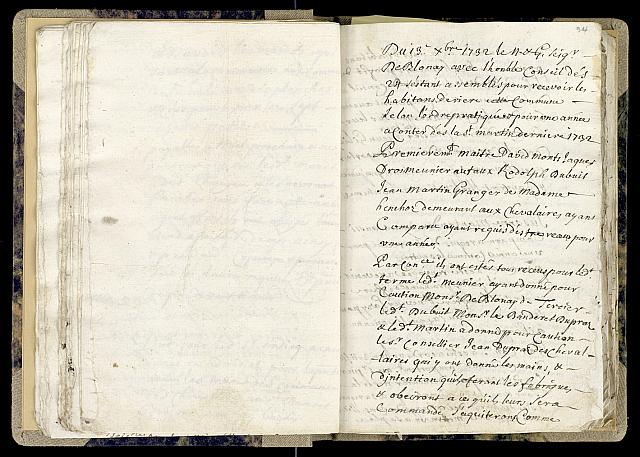 94
Du 13e Xbre 1732 le N. & G. Seigr
De Blonay avec lhonble Conseil des
24 sestant assemblés pour recevoir les
habitans deriere cette Commune
selon lordre pratiqué & pour une année
a Conter dès la St. martin derniere 1732
Premieremt maitre David Monti Jaques
meunier Rodolph Dubuit
Jean Martin Granger de Madame
demeurant aux Chevalaires, ayans
Comparu ayant requis destre receus pour
une année
Par Conce il ont estés tous receus pour ledt
terme ledt meunier ayant donné pour
Caution Monsr De Blonay de Tercier
ledt Dubuit Monsr le Banderet Dupraz
& ledt Martin a donné pour Caution
le Sr Consellier Jean Dupraz des Cheval-
laires qui y ont donné les mains, &
dintention quils feront les
& obeiront a ce quil leurs sera
Commandé saquiterons Comme